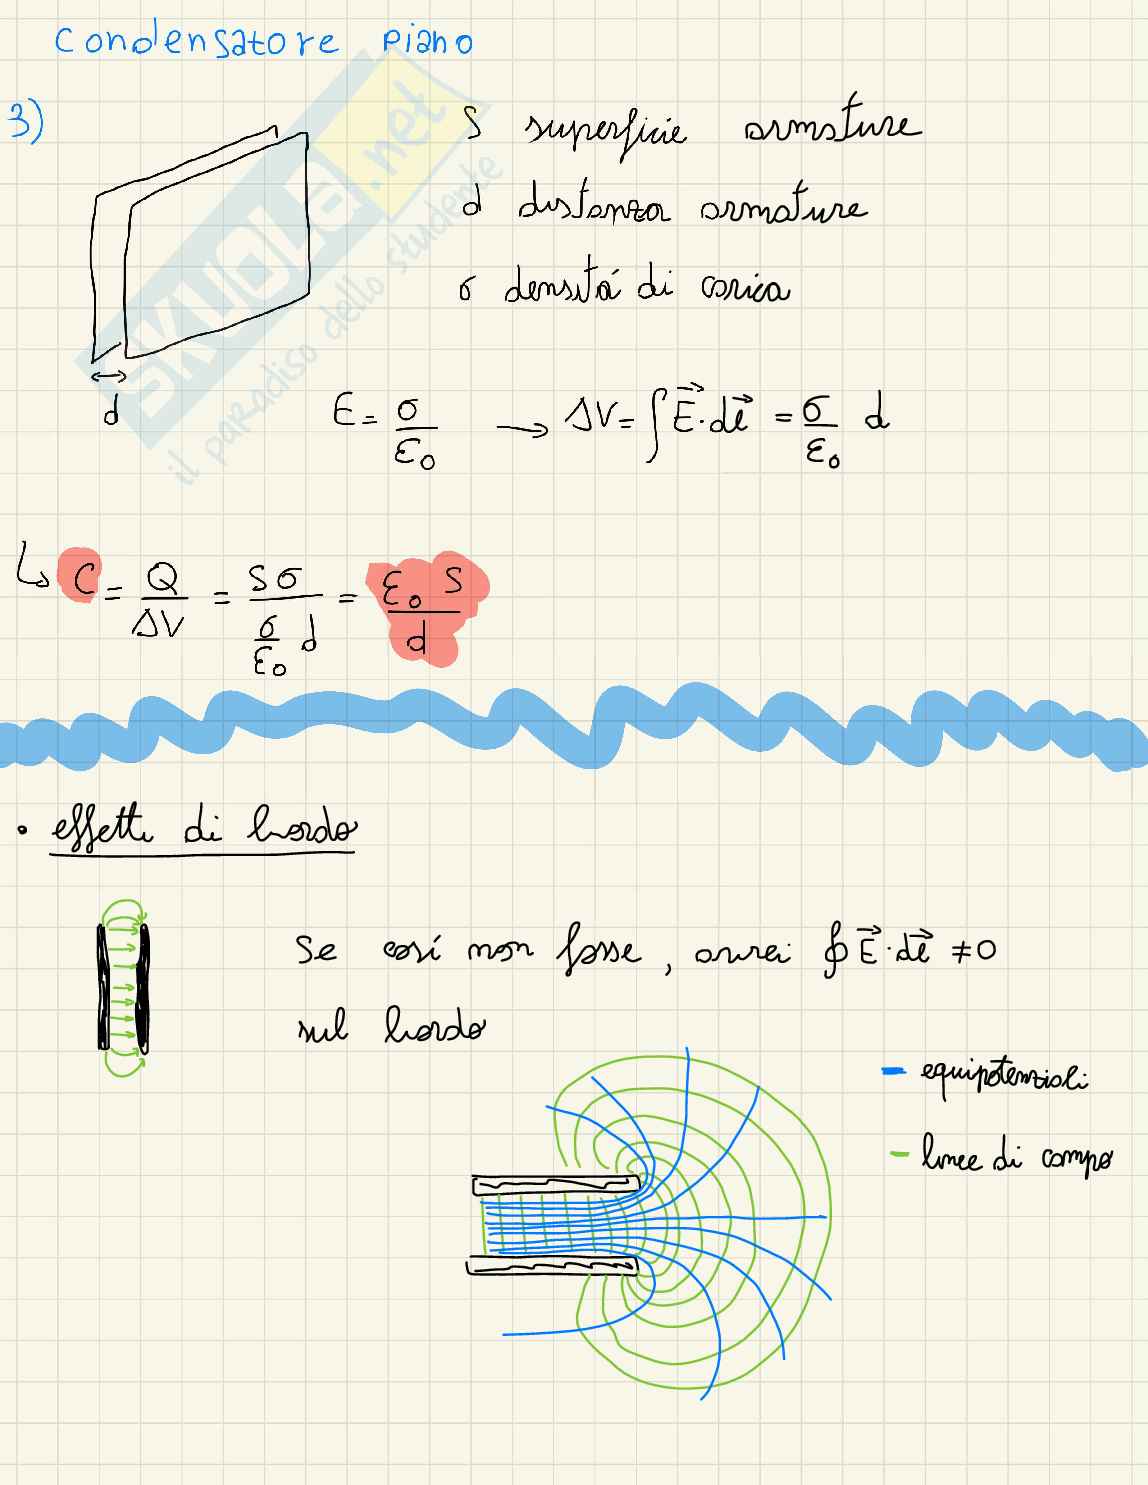 Condensatore piano
3)
S superficie armature
d distanza armature
σ densitá di carica
d
E = σ/ε₀ → ΔV = ∫ E⃗ · dl⃗ = σ/ε₀ d
↳ C = Q/ΔV = Sσ / (σ/ε₀ d) = ε₀ S / d
• effetti di bordo
Se cosí non fosse, avrei ∮ E⃗ · dl⃗ ≠ 0
sul bordo
– equipotenziali
– linee di campo
SKUOLA.net
il paradiso dello studente